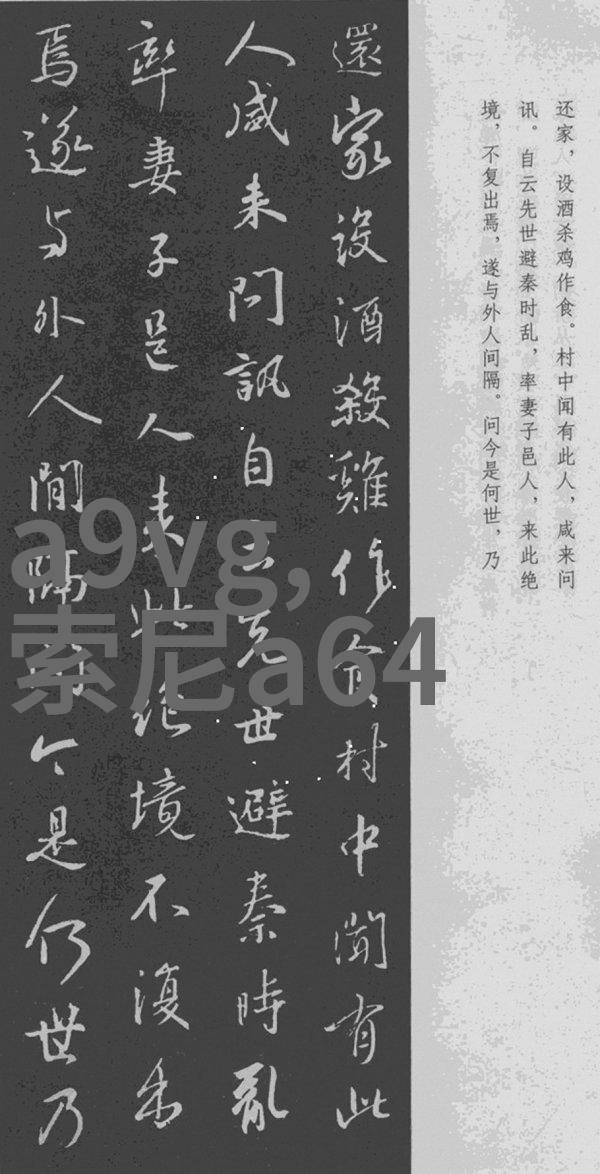 还家，设酒杀鸡作食。村中闻有此人，咸来问
讯。自云先世避秦时乱，率妻子邑人，来此绝
境，不复出焉，遂与外人间隔。问今是何世，乃
還家設酒殺雞作食村中聞有此
人咸来問訊自云先世避秦時亂
率妻子邑人来此絕境不復出
焉遂与外人間隔問今是何世乃
a9vg,
索尼a64